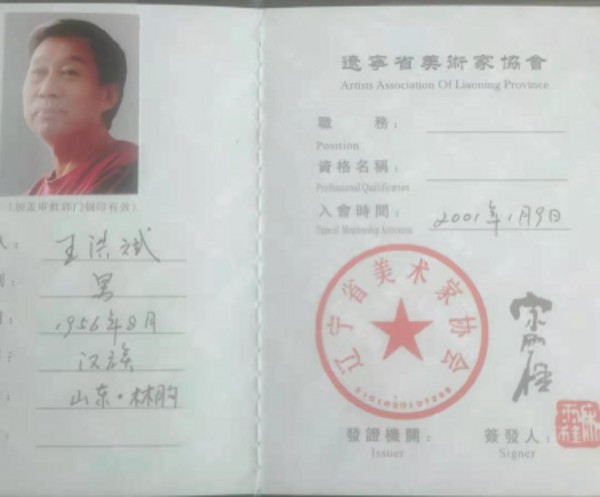 (加盖审批部门钢印有效)
人:
王洪斌
别:
男
1956年8月
汉族
山东·林朐
遼寧省美術家協會
Artists Association Of Liaoning Province
職 務:
Position
資格名稱:
Professional Qualification
入會時間:
2001年1月9日
Date of Membership Activation
辽宁省美术家协会
發證機關:
Issuer
簽發人:
Signer